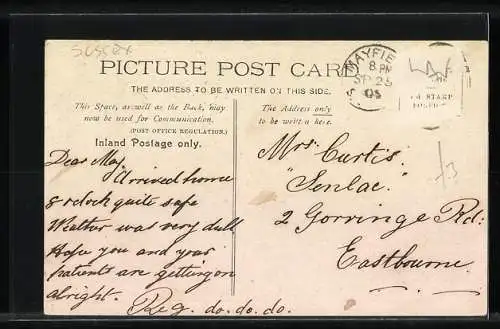 SUSSEX
PICTURE POST CARD
THE ADDRESS TO BE WRITTEN ON THIS SIDE.
This Space, as well as the Back, may
now be used for Communication.
(POST OFFICE REGULATION.)
Inland Postage only.
The Address only
to be written here.
MAYFIE
8. PM
SP 25
05
STAMP
Dear May
Arrived home
8 o'clock quite safe
Weather was very dull
Hope you and your
patients are getting on
alright.
Reg. do. do. do.
Mrs. Curtis.
"Senlac."
2 Gorringe Rd:
Eastbourne.
/3